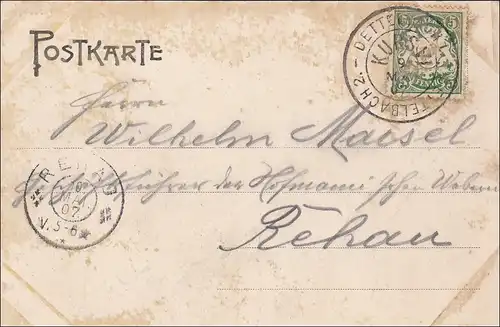 POSTKARTE
DETTELBACH 2.
5
PFENNIG
Herrn
Wilhelm Maisel
führer der Hofmann'schen Weberei
Rehau
REHAU
02
V. 5-6